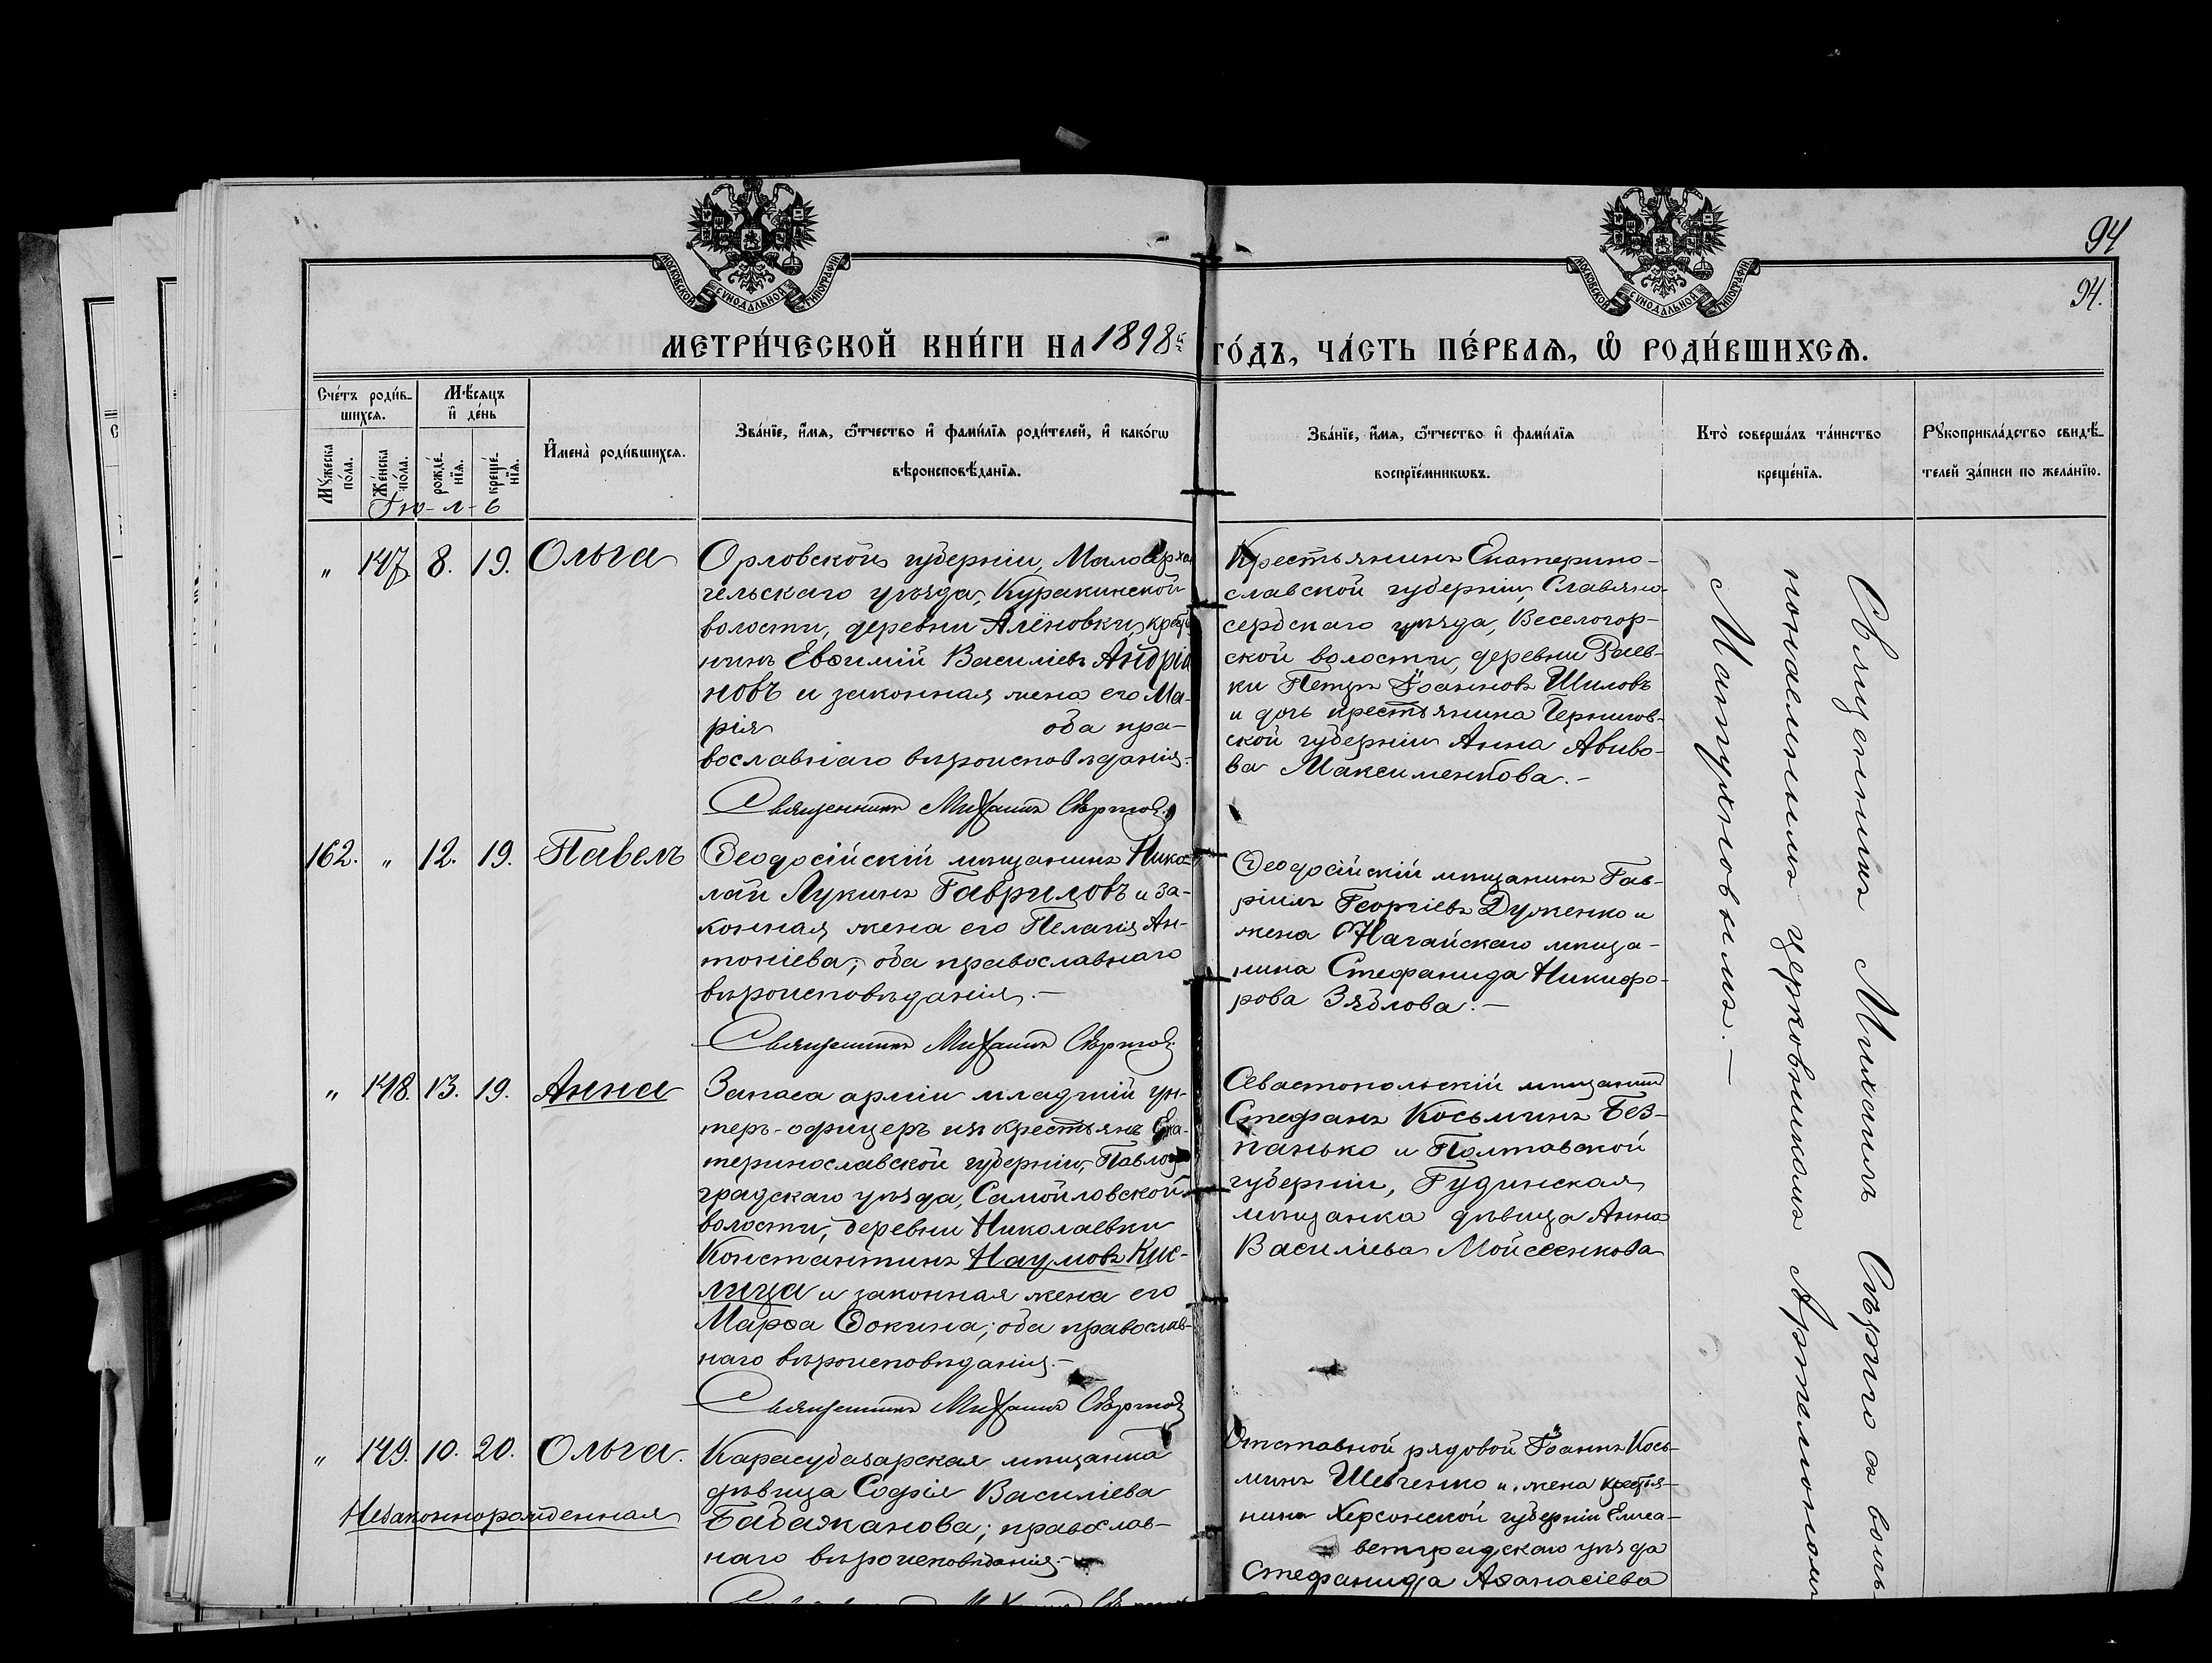 94
94.
МОСКОВСКОЙ СѴНОДАЛЬНОЙ ТИПОГРАФІИ
МОСКОВСКОЙ СѴНОДАЛЬНОЙ ТИПОГРАФІИ
МЕТРИ́ЧЕСКОЙ КНИ́ГИ НА 1898й ГО́ДЪ, ЧА́СТЬ ПЕ́РВАѦ, Ѡ҆ РОДИ́ВШИХСѦ.
Сче́тъ роди́в-
шихсѧ.
Мꙋ́жеска
по́ла.
Же́нска
по́ла.
Мѣ́сѧцъ
и҆ де́нь
рожде́-
нїѧ.
креще́-
нїѧ.
Ію-л-ь
И҆мена̀ роди́вшихсѧ.
Зва́нїе, и҆́мѧ, ѻ҆́тчество и҆ фами́лїѧ роди́телей, и҆ како́гѡ
вѣроисповѣ́данїѧ.
Зва́нїе, и҆́мѧ, ѻ҆́тчество и҆ фами́лїѧ
воспрїе́мникѡвъ.
Кто̀ соверша́лъ та́инство
креще́нїѧ.
Рꙋкоприкла́дство свидѣ́-
телей за́писи по жела́нїю.
„ 147. 8. 19. Ольга
Орловской губерніи, Малоарха
гельскаго уѣзда, Куракинской
волости, деревни Алёновки,
нинъ Евѳимій Василіевъ Андріа
новъ и законная жена его Ма-
рія оба пра-
вославнаго вѣроисповѣданія.-
Священникъ Михаилъ
Крестьянинъ Екатерино-
славской губерніи, Славяно-
сербскаго уѣзда, Веселогор-
ской волости, деревни Раев-
ки Петръ Іоанновъ Шиловъ
и дочь крестьянина Чернигов-
ской губерніи Анна Авиво-
ва Максименкова.-
162. „ 12. 19. Павелъ
Ѳеодосійскій мѣщанинъ Нико-
лай Лукинъ Гавриловъ и за-
конная жена его Пелагія Ан-
тоніева; оба православнаго
вѣроисповѣданія.-
Священникъ Михаилъ
Ѳеодосійскій мѣщанинъ Гав-
ріилъ Георгіевъ Дуженко и
жена Ногайскаго мѣща-
нина Стефанида Никифо-
рова Зяблова.-
„ 148. 13. 19. Анна
Запаса арміи младшій ун-
теръ-офицеръ изъ крестьянъ Ека-
теринославской губерніи, Павло-
градскаго уѣзда, Самойловской
волости, деревни Николаевки
Константинъ Наумовъ Кис-
лица и законная жена его
Марѳа Ѳокина; оба православ-
наго вѣроисповѣданія.-
Священникъ Михаилъ
Севастопольскій мѣщанинъ
Стефанъ Косьминъ Без-
панько и Полтавской
губерніи,
мѣщанка дѣвица Анна
Василіева Мойсеенкова
„ 149. 10. 20. Ольга.
Незаконнорожденная
Карасубазарская мѣщанка
дѣвица Софія Василіева
Бабажанова; православ-
наго вѣроисповѣданія.-
Отставной рядовой Іоаннъ Кось-
минъ Шевченко и жена крестья-
нина Херсонской губерніи Елиса-
ветградскаго уѣзда
Стефанида Аѳанасіева
Священникъ Михаилъ съ
церковникомъ